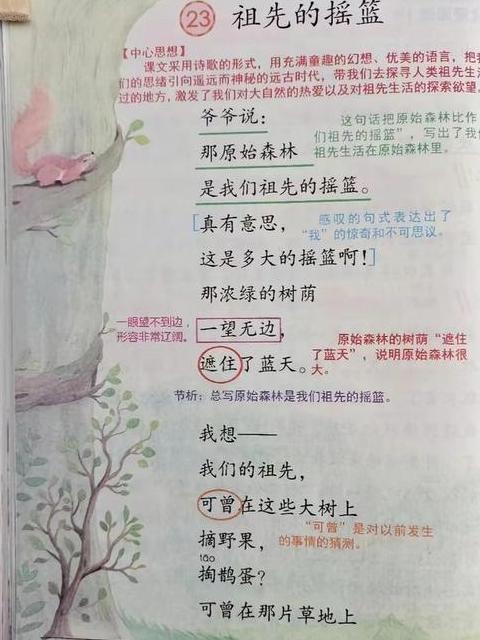 23 祖先的摇篮
【中心思想】
课文采用诗歌的形式，用充满童趣的幻想、优美的语言，把我
们的思绪引向遥远而神秘的远古时代，带我们去探寻人类祖先生活
过的地方，激发了我们对大自然的热爱以及对祖先生活的探索欲望。
爷爷说：
这句话把原始森林比作
那原始森林
们祖先的摇篮”，写出了我们
祖先生活在原始森林里。
是我们祖先的摇篮。
[真有意思，
感叹的句式表达出了
“我”的惊奇和不可思议。
这是多大的摇篮啊！]
那浓绿的树荫
一眼望不到边，
形容非常辽阔。
一望无边，
原始森林的树荫“遮住
了蓝天”，说明原始森林很
大。
遮住了蓝天。
节析：总写原始森林是我们祖先的摇篮。
我想——
我们的祖先，
可曾在这些大树上
摘野果，
“可曾”是对以前发生
的事情的猜测。
tāo
掏鹊蛋？
可曾在那片草地上